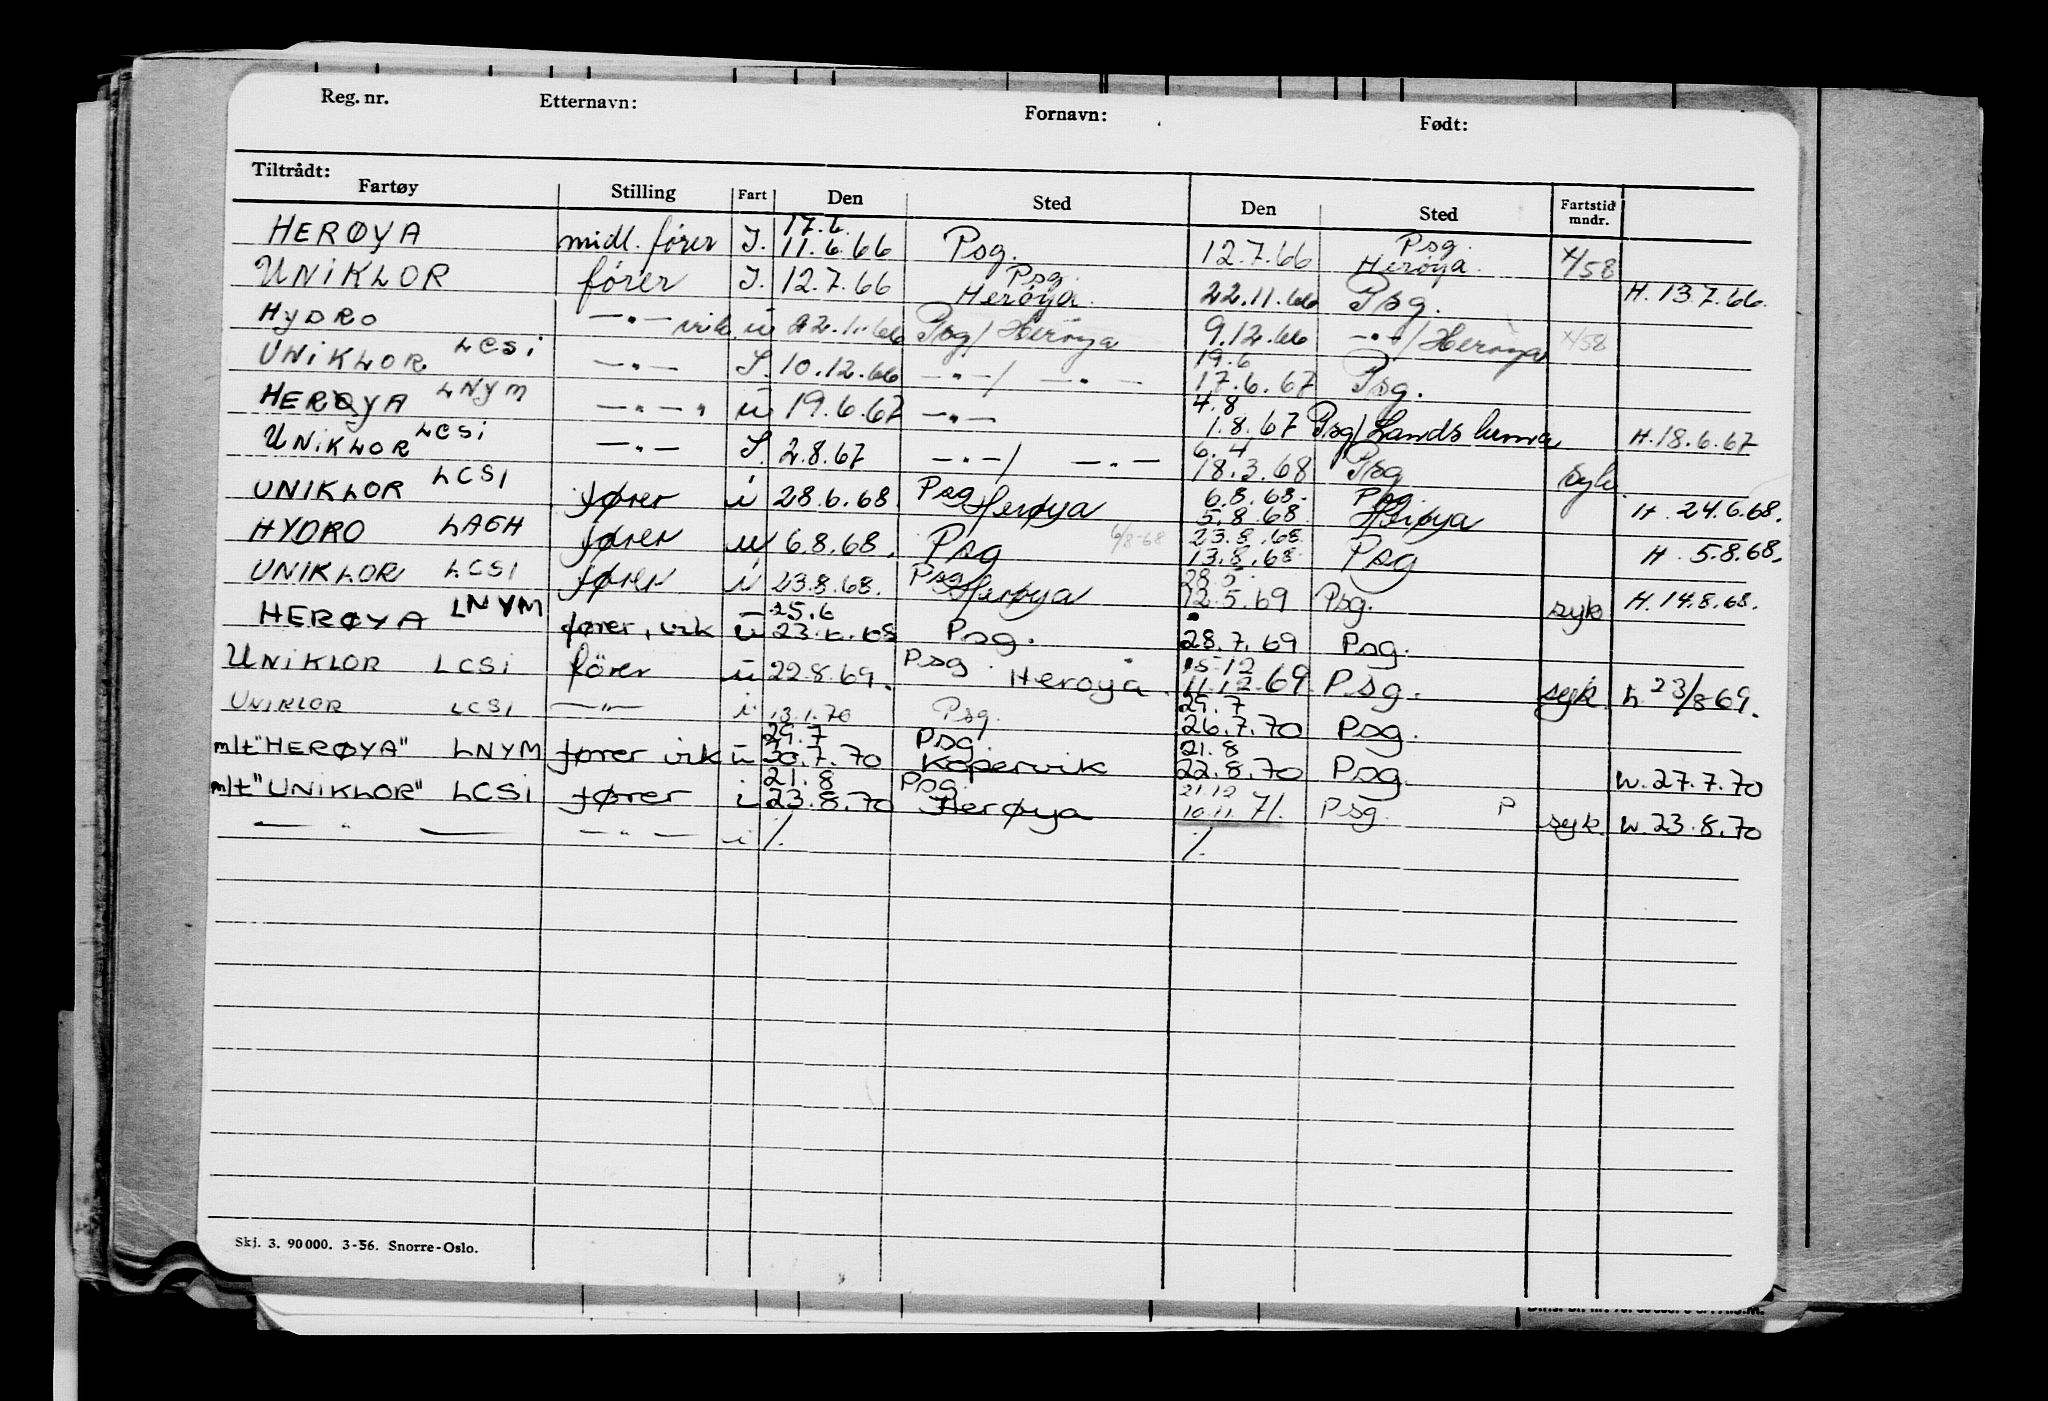 Reg. nr. Etternavn: Fornavn: Født:
Tiltrådt:
Fartøy Stilling Fart Den Sted Den Sted Fartstid mndr.
17.6.
HERØYA midl. fører I. 11.6.66 Psg. 12.7.66 Psg. Herøya. x/58
UNIKLOR fører I. 12.7.66 Psg. Herøya. 22.11.66 Psg. H. 13.7.66.
HYDRO —"— vik. u 22.11.66 Psg/Herøya 9.12.66 —"—/Herøya x/58
19.6
UNIKLOR LCSI —"— I. 10.12.66 —"—/ —"— 17.6.67 Psg.
4.8
HERØYA LNYM —"—" u 19.6.67 —"— 1.8.67 Psg/Landskrona H.18.6.67
6.4
UNIKLOR LCSI —"— I. 2.8.67 —"—/ —"— 18.3.68 Psg syk.
6.8.68. Psg.
UNIKLOR LCSI fører i 28.6.68. Psg Herøya 5.8.68. Herøya H. 24.6.68.
23.8.68.
HYDRO LAEH fører u 6.8.68. Psg 6/8-68 13.8.68 Psg H. 5.8.68.
28.5.
UNIKLOR LCSI fører i 23.8.68. Psg Herøya 12.5.69 Psg. syk H. 14.8.68.
25.6
HERØYA LNYM fører, vik u 23.6.68 Psg. 28.7.69 Psg.
15.12
UNIKLOR LCSI fører u 22.8.69. Psg. Herøya. 11.12.69. Psg. syk h. 23/8 69.
29.7
UNIKLOR LCSI —"— i 13.1.70 Psg. 26.7.70 Psg.
29.7 Psg. 21.8
m/t "HERØYA" LNYM fører vik u 30.7.70 Kopervik 22.8.70 Psg. W. 27.7.70
21.8 Psg. 21.12
m/t "UNIKLOR" LCSI fører i 23.8.70 Herøya 10.11.71. Psg. P syk. W. 23.8.70
—"— —"— i /. /.
Skj. 3. 90000. 3-56. Snorre-Oslo.